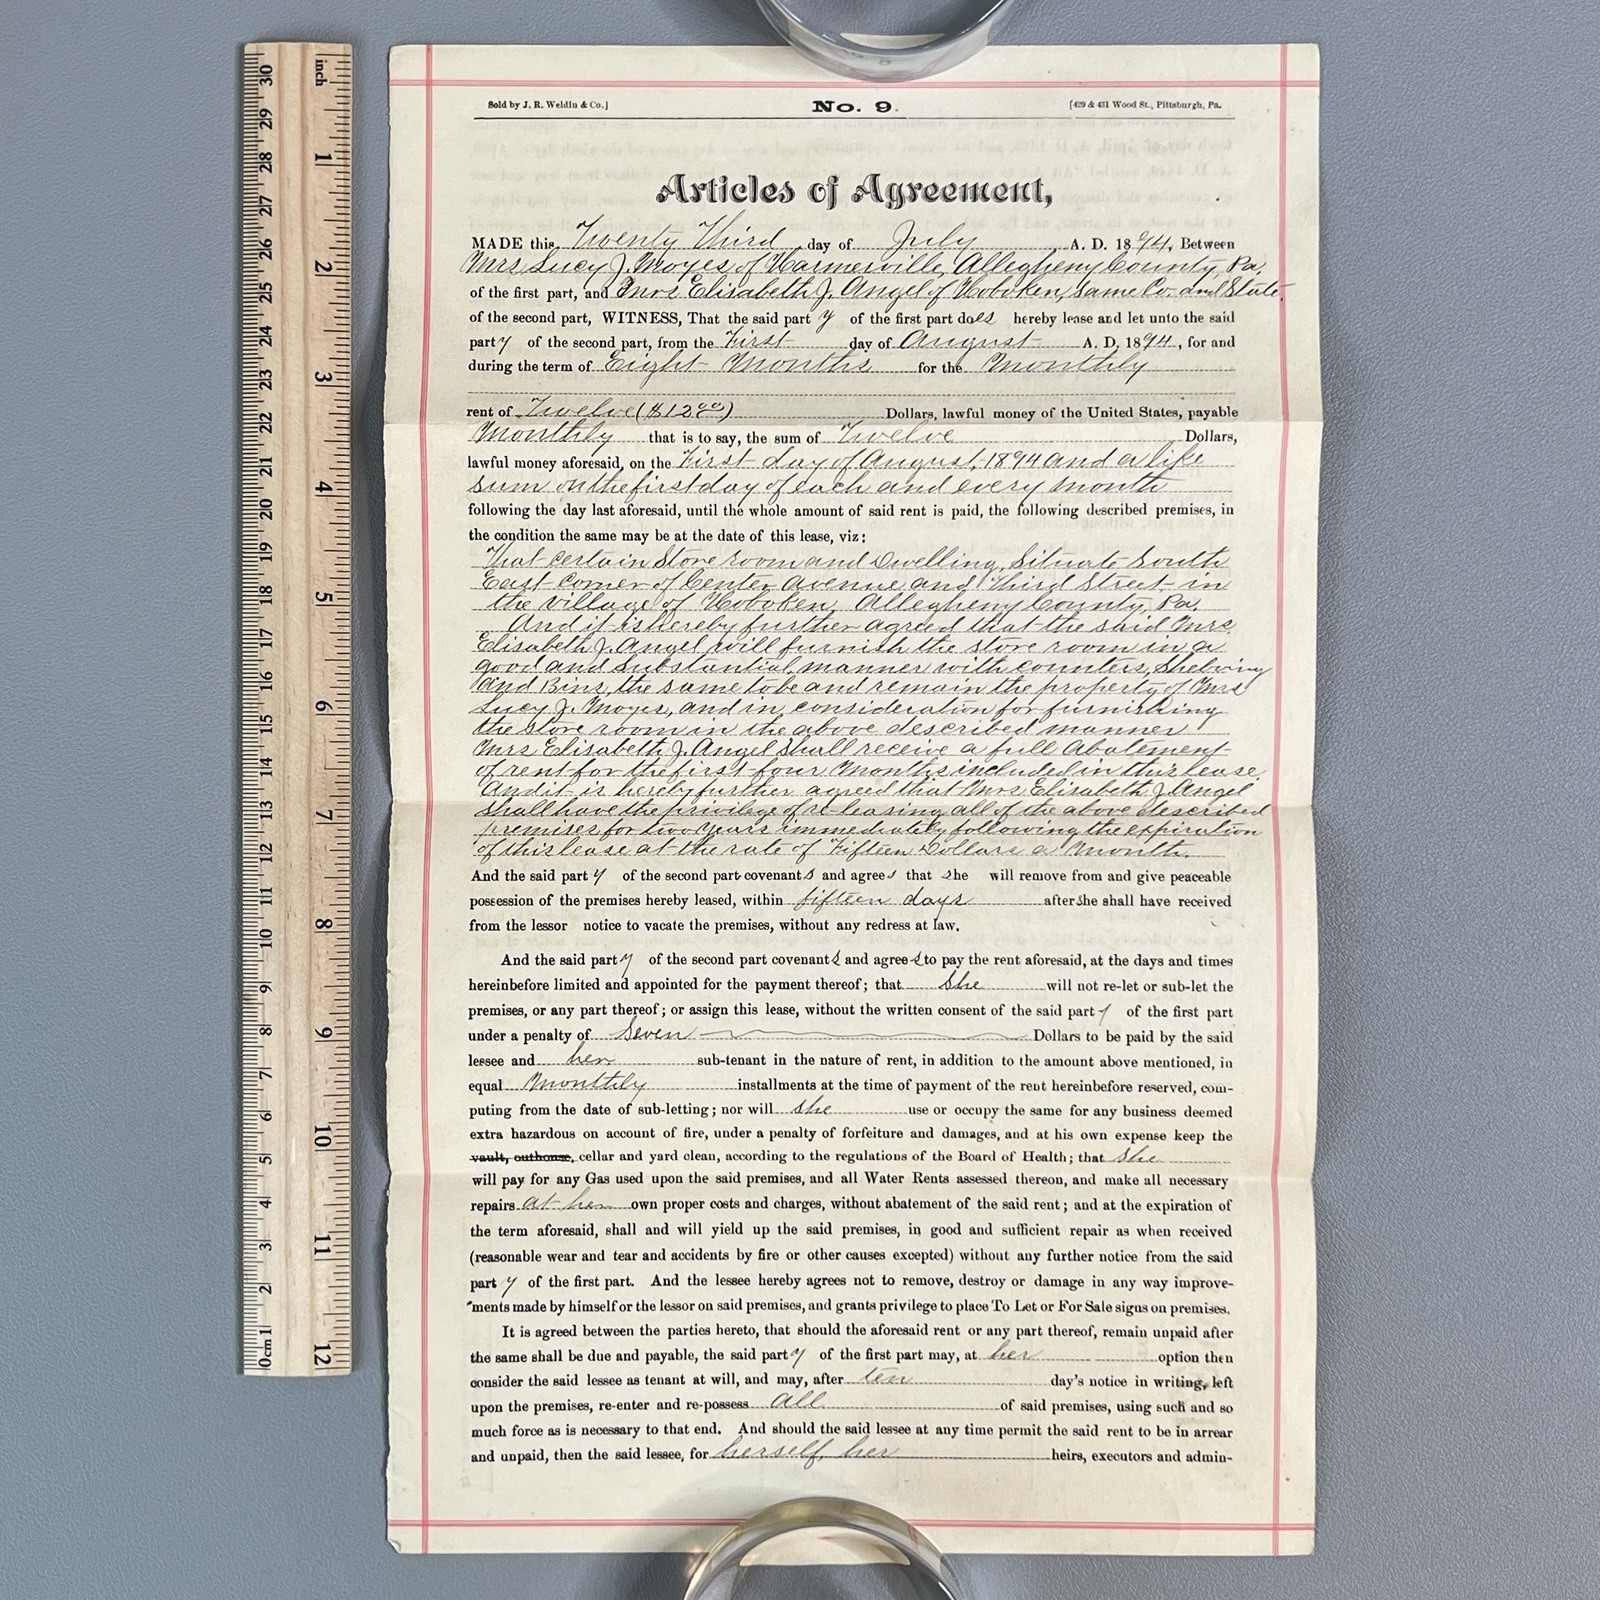 Sold by J. R. Weldin & Co.]
No. 9.
[429 & 431 Wood St., Pittsburgh, Pa.
Articles of Agreement,
MADE this Twenty Third day of July A. D. 1894, Between
Mrs Lucy J. Moyes of Harmerville, Allegheny County, Pa.
of the first part, and Mrs Elisabeth J. Angel of Hoboken, Same Co. and State.
of the second part, WITNESS, That the said party of the first part does hereby lease and let unto the said
party of the second part, from the First day of August A. D. 1894, for and
during the term of Eight Months for the Monthly
rent of Twelve ($12 00) Dollars, lawful money of the United States, payable
Monthly that is to say, the sum of Twelve Dollars,
lawful money aforesaid, on the First day of August, 1894 and a like
sum on the first day of each and every month
following the day last aforesaid, until the whole amount of said rent is paid, the following described premises, in
the condition the same may be at the date of this lease, viz:
That certain Store room and Dwelling, Situate South
East corner of Center avenue and Third Street in
the village of Hoboken, Allegheny County, Pa.
And it is hereby further agreed that the said Mrs.
Elisabeth J. Angel will furnish the store room in a
good and Substantial manner with counters, Shelving
and Bins, the same to be and remain the property of Mrs
Lucy J. Moyes, and in consideration for furnishing
the store room in the above described manner
Mrs Elisabeth J. Angel Shall receive a full Abatement
of rent for the first four Months included in this lease.
And it is hereby further agreed that Mrs Elisabeth J. Angel
shall have the privilege of re-leasing all of the above described
premises for two years immediately following the expiration
of this lease at the rate of Fifteen Dollars a Month.
And the said party of the second part covenants and agrees that she will remove from and give peaceable
possession of the premises hereby leased, within fifteen days after she shall have received
from the lessor notice to vacate the premises, without any redress at law.
And the said party of the second part covenants and agrees to pay the rent aforesaid, at the days and times
hereinbefore limited and appointed for the payment thereof; that she will not re-let or sub-let the
premises, or any part thereof; or assign this lease, without the written consent of the said party of the first part
under a penalty of Seven Dollars to be paid by the said
lessee and her sub-tenant in the nature of rent, in addition to the amount above mentioned, in
equal Monthly installments at the time of payment of the rent hereinbefore reserved, com-
puting from the date of sub-letting; nor will she use or occupy the same for any business deemed
extra hazardous on account of fire, under a penalty of forfeiture and damages, and at his own expense keep the
vault, outhouse, cellar and yard clean, according to the regulations of the Board of Health; that she
will pay for any Gas used upon the said premises, and all Water Rents assessed thereon, and make all necessary
repairs at her own proper costs and charges, without abatement of the said rent; and at the expiration of
the term aforesaid, shall and will yield up the said premises, in good and sufficient repair as when received
(reasonable wear and tear and accidents by fire or other causes excepted) without any further notice from the said
party of the first part. And the lessee hereby agrees not to remove, destroy or damage in any way improve-
ments made by himself or the lessor on said premises, and grants privilege to place To Let or For Sale signs on premises.
It is agreed between the parties hereto, that should the aforesaid rent or any part thereof, remain unpaid after
the same shall be due and payable, the said party of the first part may, at her option then
consider the said lessee as tenant at will, and may, after ten day's notice in writing, left
upon the premises, re-enter and re-possess all of said premises, using such and so
much force as is necessary to that end. And should the said lessee at any time permit the said rent to be in arrear
and unpaid, then the said lessee, for herself, her heirs, executors and admin-
inch
1
2
3
4
5
6
7
8
9
10
11
12
30
29
28
27
26
25
24
23
22
21
20
19
18
17
16
15
14
13
12
11
10
9
8
7
6
5
4
3
2
1
0cm